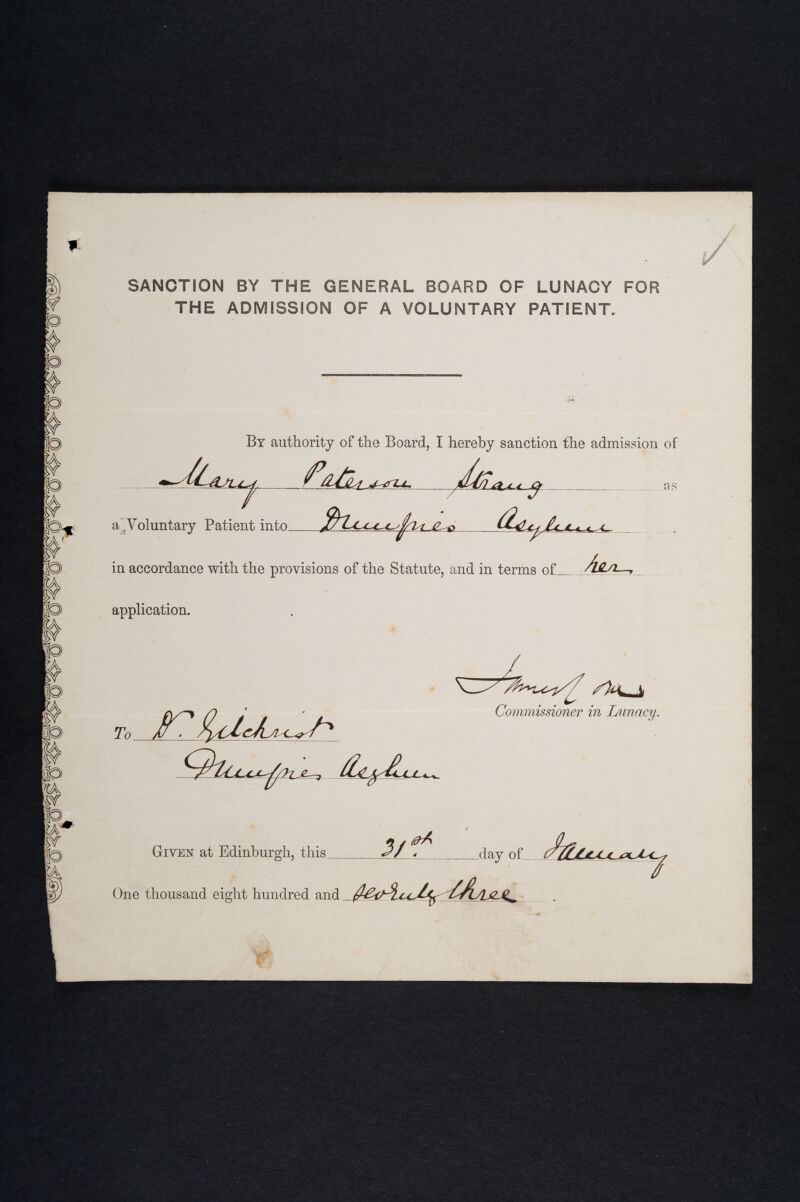 SANCTION BY THE GENERAL BOARD OF LUNACY FOR
THE ADMISSION OF A VOLUNTARY PATIENT.
By authority of the Board, I hereby sanction the admission of
Mary Paterson Strang as
a Voluntary Patient into Dumfries Asylum.
in accordance with the provisions of the Statute, and in terms of her
application.
James Coxe
Commissioner in Lunacy.
To Dr. Gilchrist
Dumfries Asylum
Given at Edinburgh, this 31st. day of January
One thousand eight hundred and seventy three.